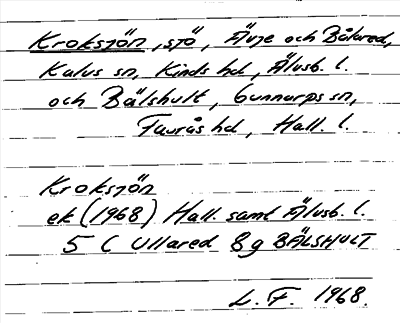 Kroksjön, sjö, Älvje och Bälared,
Kalvs sn, Kinds hd, Älvsb. l.
och Bälshult, Gunnarps sn,
Faurås hd, Hall. l.
Kroksjön
ek (1968) Hall. samt Älvsb. l.
5 C Ullared 8g BÄLSHULT
L. F. 1968.